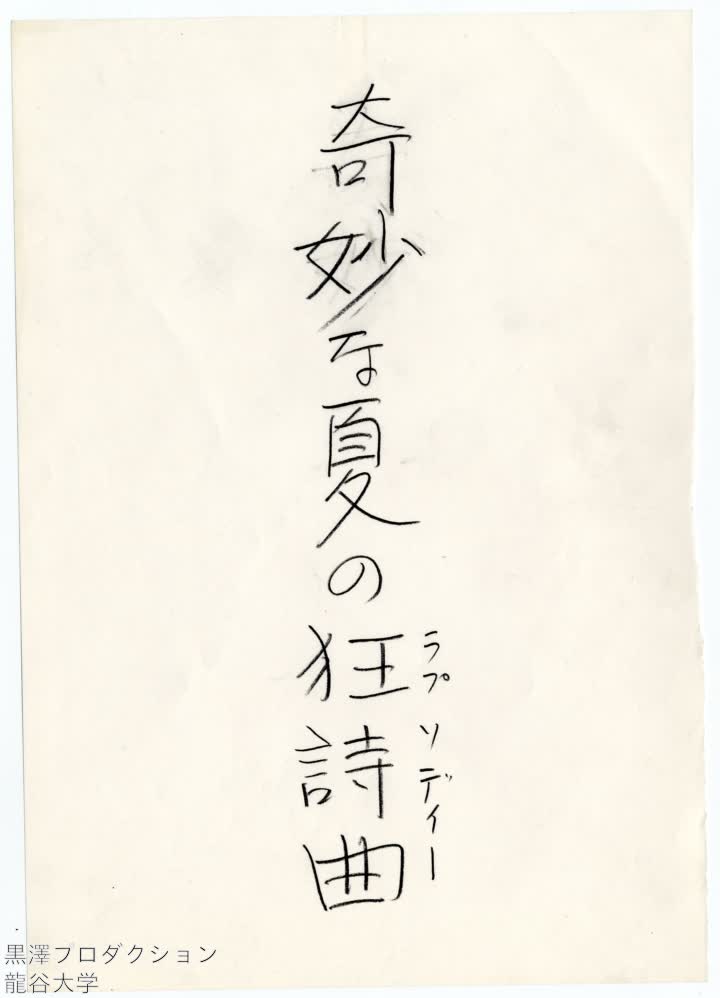 奇妙な夏の狂詩曲
ラプソディー
黒澤プロダクション
龍谷大学